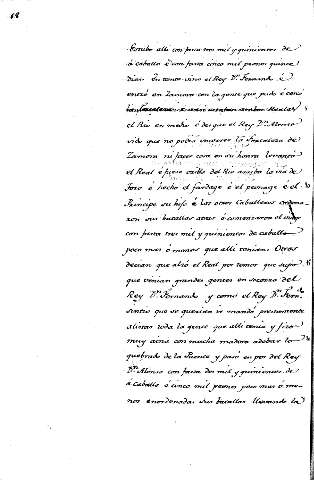 18
Estubo alli con fasta tres mil y quinientos de
á caballo é con fasta cinco mil peones quince
dias. En tanto vino el Rey Dn. Fernando é
entró en Zamora con la gente que pudo é con
el Rio en medio é des que el Rey Dn. Alonso
vido que no podia socorrer la Fortaleza de
Zamora ni facer cosa en su honra levantó
el Real é fuese orilla del Rio arriba la via de
Toro é hecho el fardage é el peonage é el
Principe su hijo é los otros Caballeros ordena-
ron sus batallas atras é comenzaron el
con fasta tres mil y quinientos de caballo
poco mas ó menos que alli tenian. Otros
decian que alzó el Real por temor que supo
que venian grandes gentes en socorro del
Rey Dn. Fernando y como el Rey Dn. Fern.do
sintio que se querian ir mandó prestamente
alistar toda la gente que alli tenia y fizo
muy aina con mucha madera adobar lo
quebrado de la Puente y pasó en pos del Rey
Dn. Alonso con fasta dos mil y quinientos de
á Caballo é cinco mil peones poco mas ó me-
nos enordenadas sus batallas llevando la